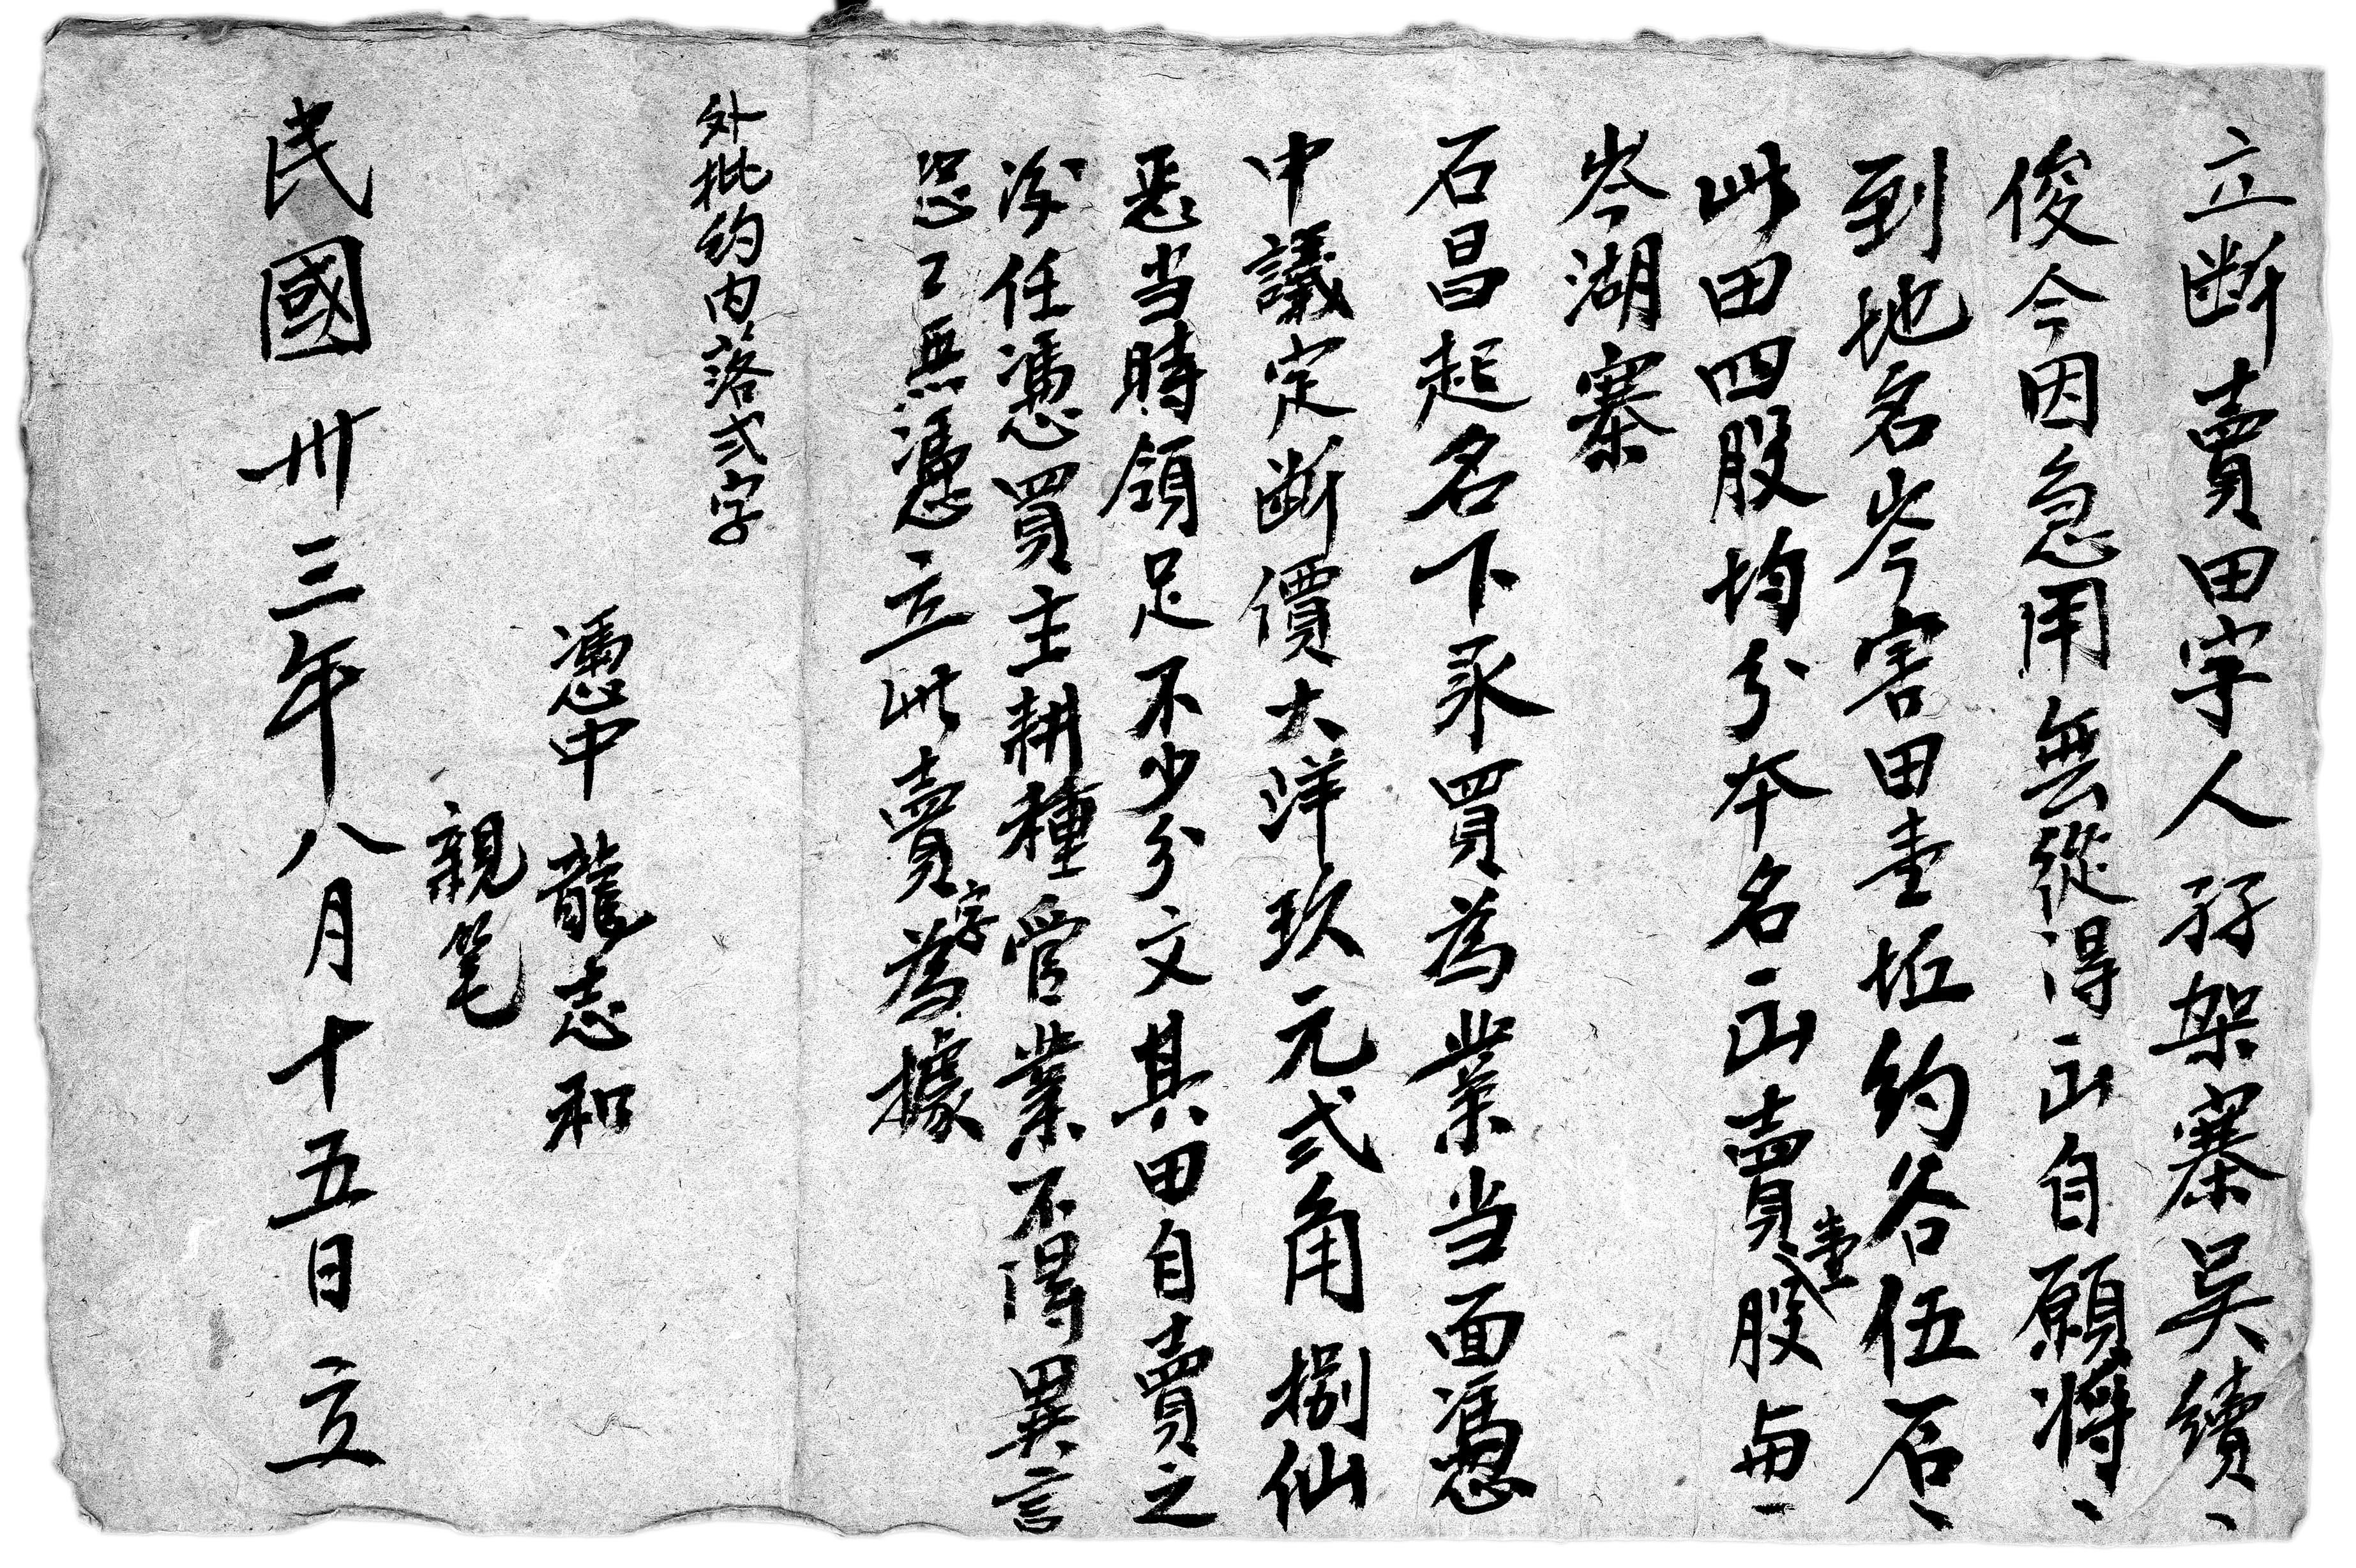 立断賣田字人孖架寨吴續、
俊今因急用無從得出自願將、
到地名岑害田壹坵約谷伍石、
此田四股均分本名出賣壹股与、
岑湖寨
石昌起名下承買為業当面憑
中議定断價大洋玖元弍角捌仙
当時領足不少分文其田自賣之
後任憑買主耕種管業不得異言
恐口無憑立此賣字為據
外批約内落弍字
憑中 龍志和
親笔
民國卅三年八月十五日 立